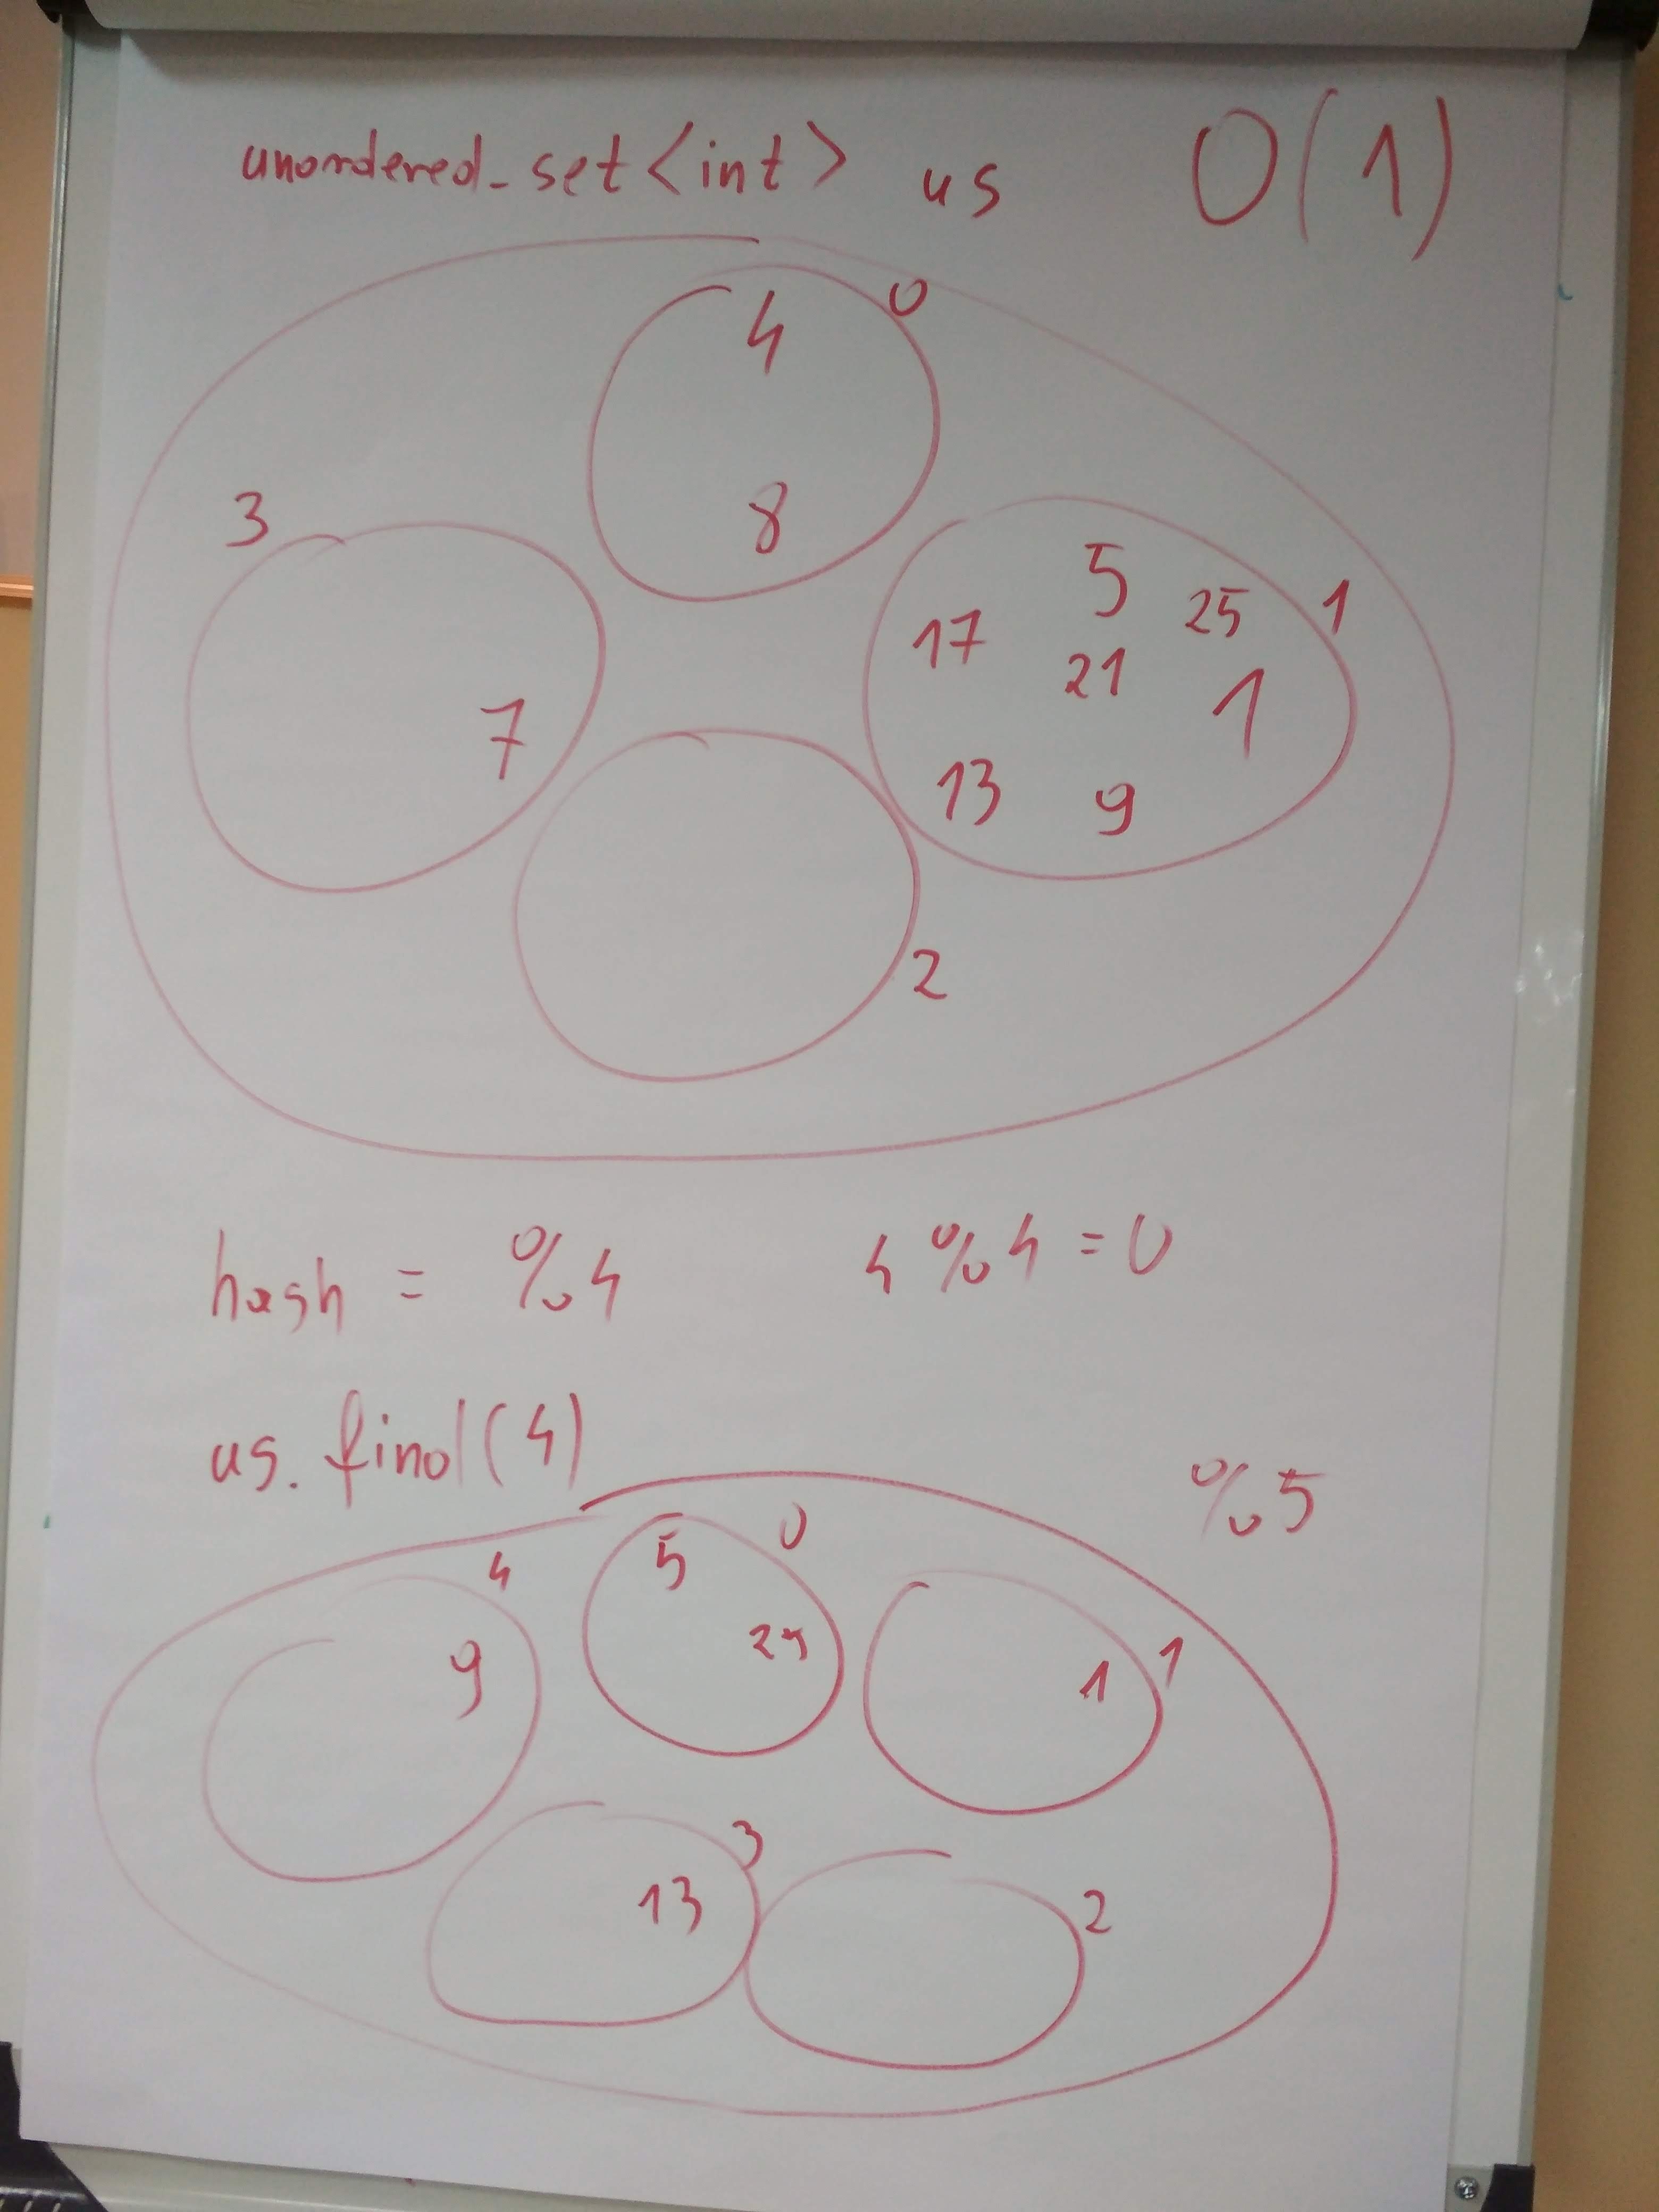 unordered_set<int> us O(1)
0
4
8
3
7
1
5 25
17
21 1
13 9
2
hash = %4 4%4=0
us.find(4)
%5
0
5
25
4
9
1
1
3
13
2